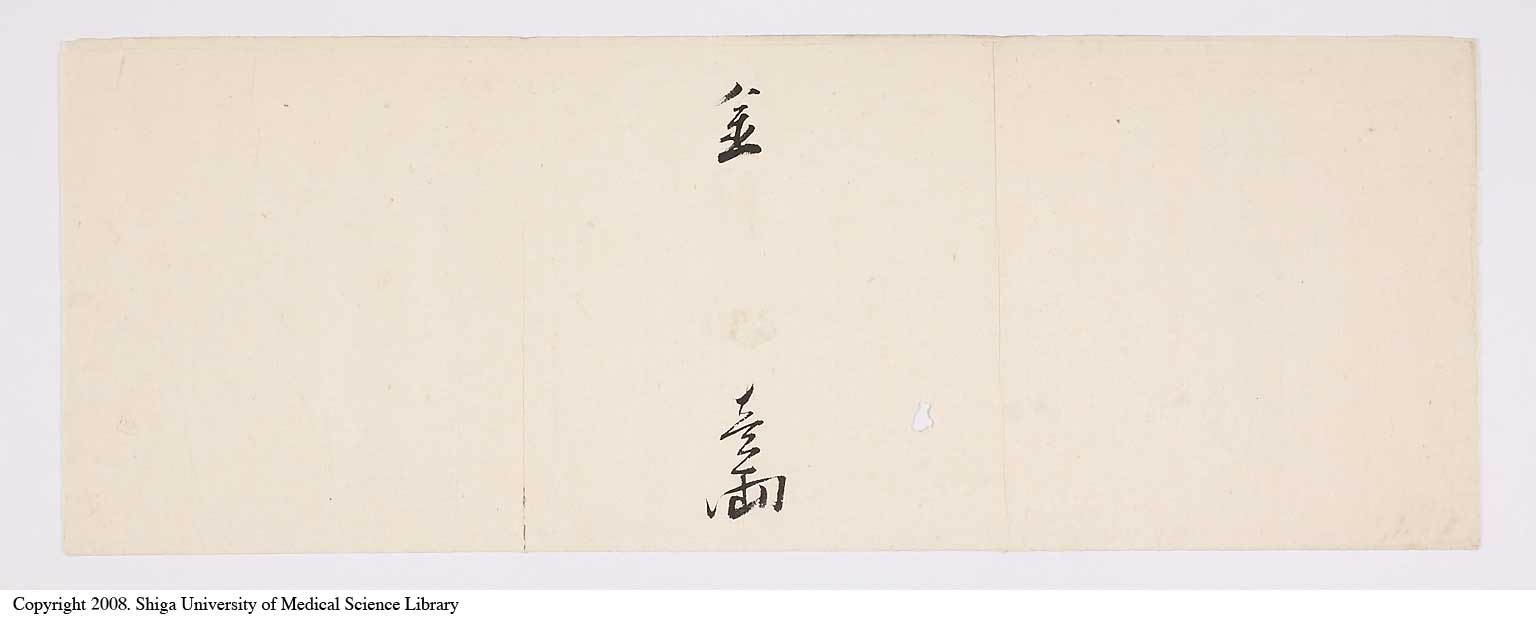 金 壱両
Copyright 2008. Shiga University of Medical Science Library